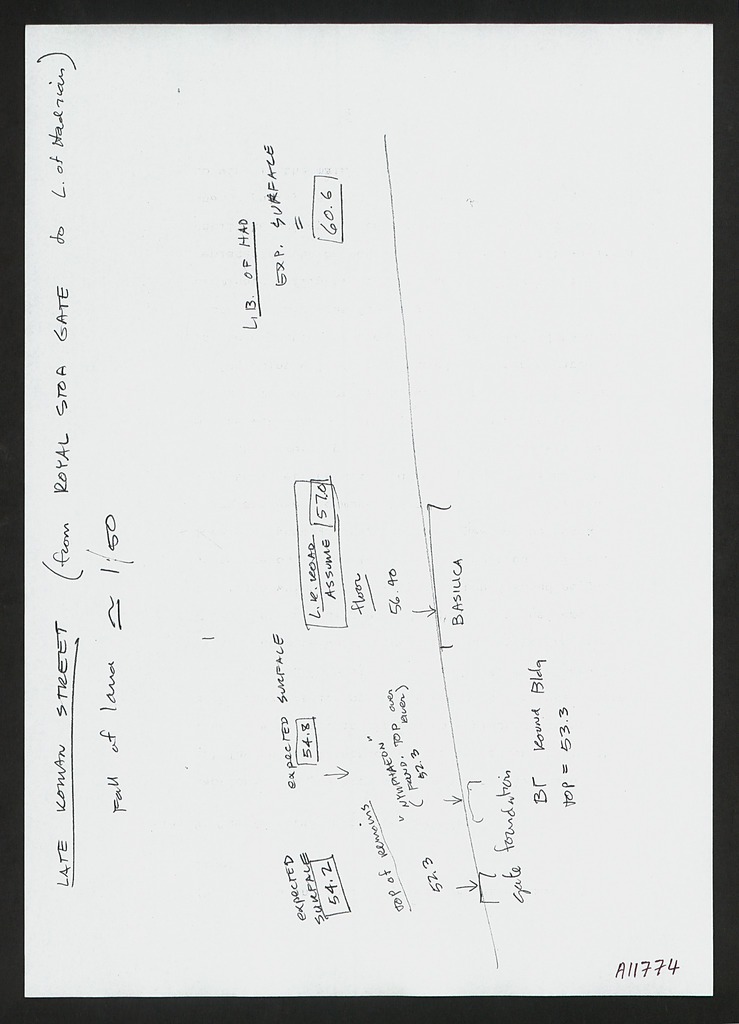 LATE ROMAN STREET (from ROYAL STOA GATE to L. of Hadrian)
Fall of land ≃ 1/50
LIB. OF HAD
EXP. SURFACE
=
60.6
L.R. ROAD
ASSUME 57.0
floor
56.40
BASILICA
EXPECTED SURFACE
54.8
"NYMPHAEON"
(FOUND. TOP over
52.3
EXPECTED
SURFACE
54.2
TOP of remains
52.3
gate foundation
BΓ Round Bldg
TOP = 53.3
A11774